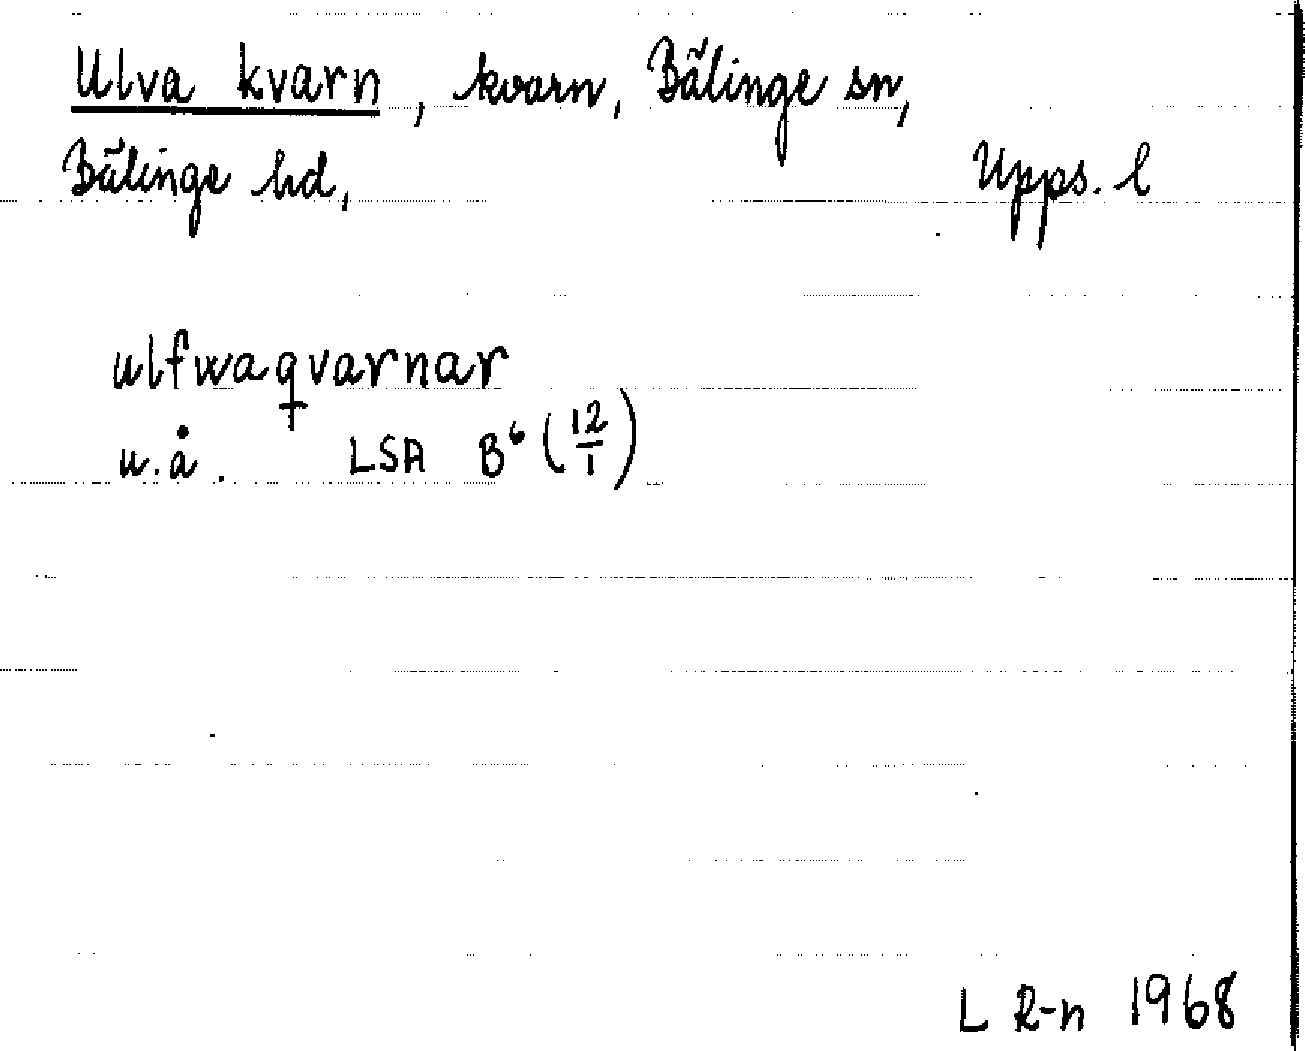 Ulva kvarn, kvarn, Bälinge sn,
Bälinge hd, Upps. l
ulfwaqvarnar
u.å. LSA B⁶ (12/1)
L R-n 1968